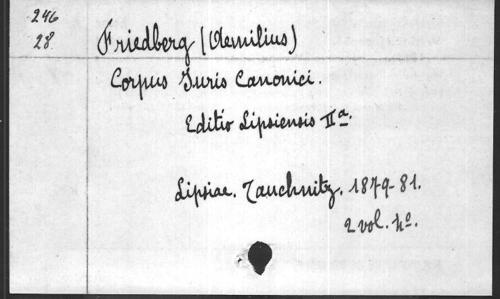 246
28
Friedberg (Aemilius)
Corpus Juris Canonici.
Editio Lipsiensis IIa.
Lipsiae. Tauchnitz. 1879-81.
2 vol. 4o.